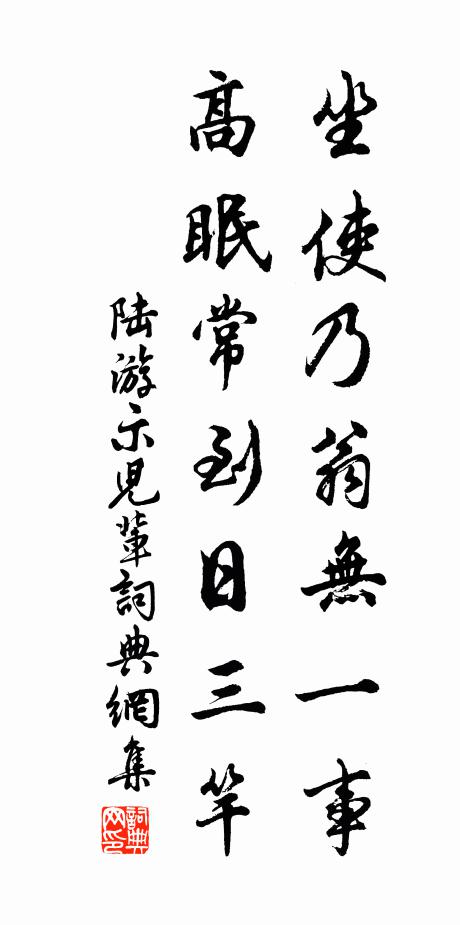 坐使乃翁無一事
高眠常到日三竿
陆游示児輩詞典網集
詞典
网印